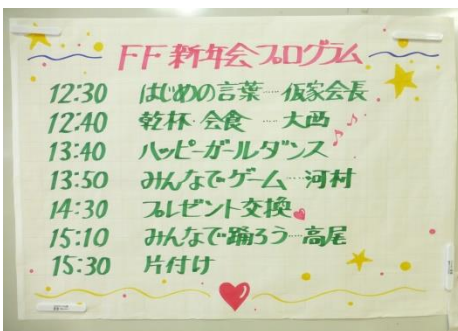 FF新年会プログラム
12:30 はじめの言葉……仮家会長
12:40 乾杯・会食……大西
13:40 ハッピーガールダンス
13:50 みんなでゲーム……河村
14:30 プレゼント交換
15:10 みんなで踊ろう……高尾
15:30 片付け